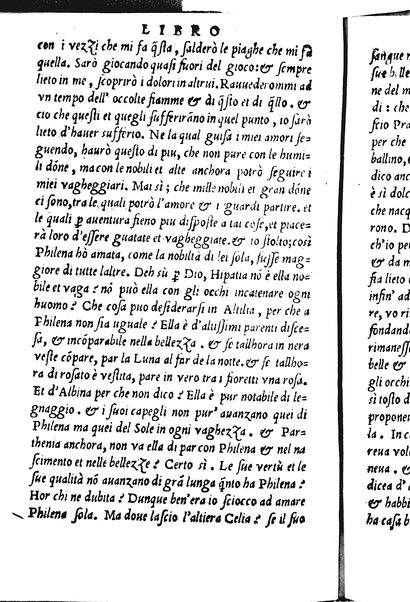 LIBRO
con i vezzi che mi fa q̃sta, salderò le piaghe che mi fa
quella. Sarò giocando quasi fuori del gioco: & sempre
lieto in me, scoprirò i dolori in altrui. Rauuederommi ad
vn tempo dell' occolte fiamme & di q̃sto et di q̃llo. &
cio che questi et quegli sufferiranno in quel punto, io sarà
lieto d'hauer sufferto. Ne la qual guisa i miei amori se-
guendo, haurò questo di piu, che non pure con le humi-
li dõne, ma con le nobili et alte anchora potrò seguire i
miei vagheggiari. Mai sì; che mille nobili et gran dõne
ci sono, tra le quali potrò l'amore & i guardi partire. et
le quali ꝑ auentura fieno piu disposte a tai cose, et piace-
rà loro d'essere guatate et vagheggiate. & io stolto; così
Philena hò amata, come la nobiltà di lei sola, fusse mag-
giore di tutte laltre. Deh sù ꝑ Dio, Hipatia nõ è ella no-
bile et vaga? nõ può ella con gli occhi incatenare ogni
huomo? Che cosa puo desiderarsi in Altilia, per che a
Philena non sia uguale? Ella è d'altissimi parenti disce-
sa, & incõparabile nella bellezza. & se talhora in nera
veste cõpare, par la Luna al far de la notte. & se talho-
ra di rosato è vestita, pare in vero tra i fioretti vna rosa.
Et d'Albina per che non dico? Ella è pur notabile di le-
gnaggio. & i suoi capegli non pur' auanzano quei di
Philena ma quei del Sole in ogni vaghezza. & Par-
thenia anchora, non va ella di par con Philena & nel na
scimento et nelle bellezze? Certo sì. Le sue vertù et le
sue qualità nõ auanzano di grã lunga q̃nto ha Philena?
Hor chi ne dubita? Dunque ben'era io sciocco ad amare
Philena sola. Ma doue lascio l'altiera Celia? se il suo
sanque n
sue b. lle
ne del m
di: che
scio Pra
per che
ballino,
dico anc
è sì dolc
che nacq
rono. D
ch'io pe
& da m
sia lieto
infin' ad
re, vo ri
fondando
rimaness
belle &
gli occhi
sì tosto d
proponen
la. In c
reua vol
neua. &
dicea d'
& habbi
ha casa b